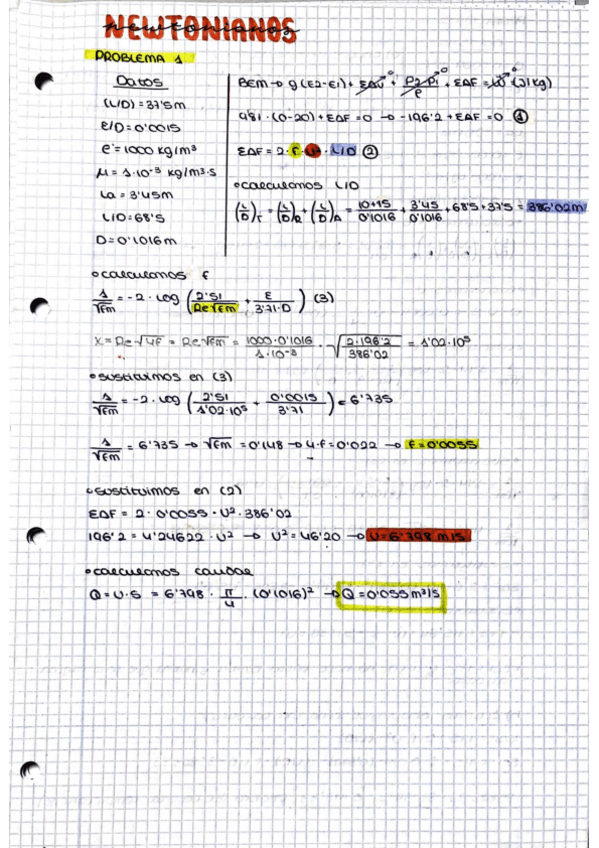 NEWTONIANOS
newtonianos
PROBLEMA 1
Datos
(L/D) = 37'5m
ε/D = 0'0015
ρ = 1000 kg/m³
μ = 1·10⁻³ kg/m³·s
La = 3'45m
L/D = 68'5
D = 0'1016m
BEM → g(z2-z1) + ΣΔv⁰ + P2-P1⁰/ρ + ΣΔF = w⁰ (J/kg)
9'81·(0-20) + ΣΔF = 0 → -196'2 + ΣΔF = 0 ①
ΣΔF = 2·f·U²·L/D ②
•Calculamos L/D
(L/D)T = (L/D)R + (L/D)A = 10+15/0'1016 + 3'45/0'1016 + 68'5 + 37'5 = 386'02m
•calculamos f
1/√Fm = -2·log (2'51/Re√Fm + ε/3'71·D) (3)
X = Re√4F = Re√Fm = 1000·0'1016/1·10⁻³ · √2·196'2/386'02 = 1'02·10⁵
•sustituimos en (3)
1/√Fm = -2·log (2'51/1'02·10⁵ + 0'0015/3'71) = 6'735
1/√Fm = 6'735 → √Fm = 0'148 → 4·f = 0'022 → f = 0'0055
•sustituimos en (2)
ΣΔF = 2·0'0055·U²·386'02
196'2 = 4'24622·U² → U² = 46'20 → U = 6'798 m/s
•calculamos caudal
Q = U·S = 6'798 · π/4 · (0'1016)² → Q = 0'055 m³/s